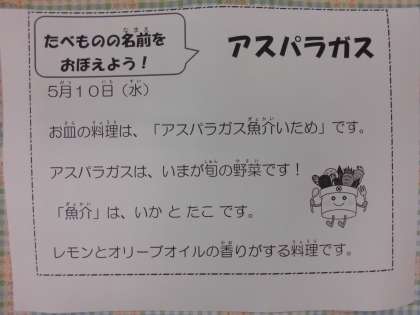 たべものの名前を
おぼえよう！
アスパラガス
5月１０日（水）
お皿の料理は、「アスパラガス魚介いため」です。
アスパラガスは、いまが旬の野菜です！
「魚介」は、いか と たこ です。
レモンとオリーブオイルの香りがする料理です。